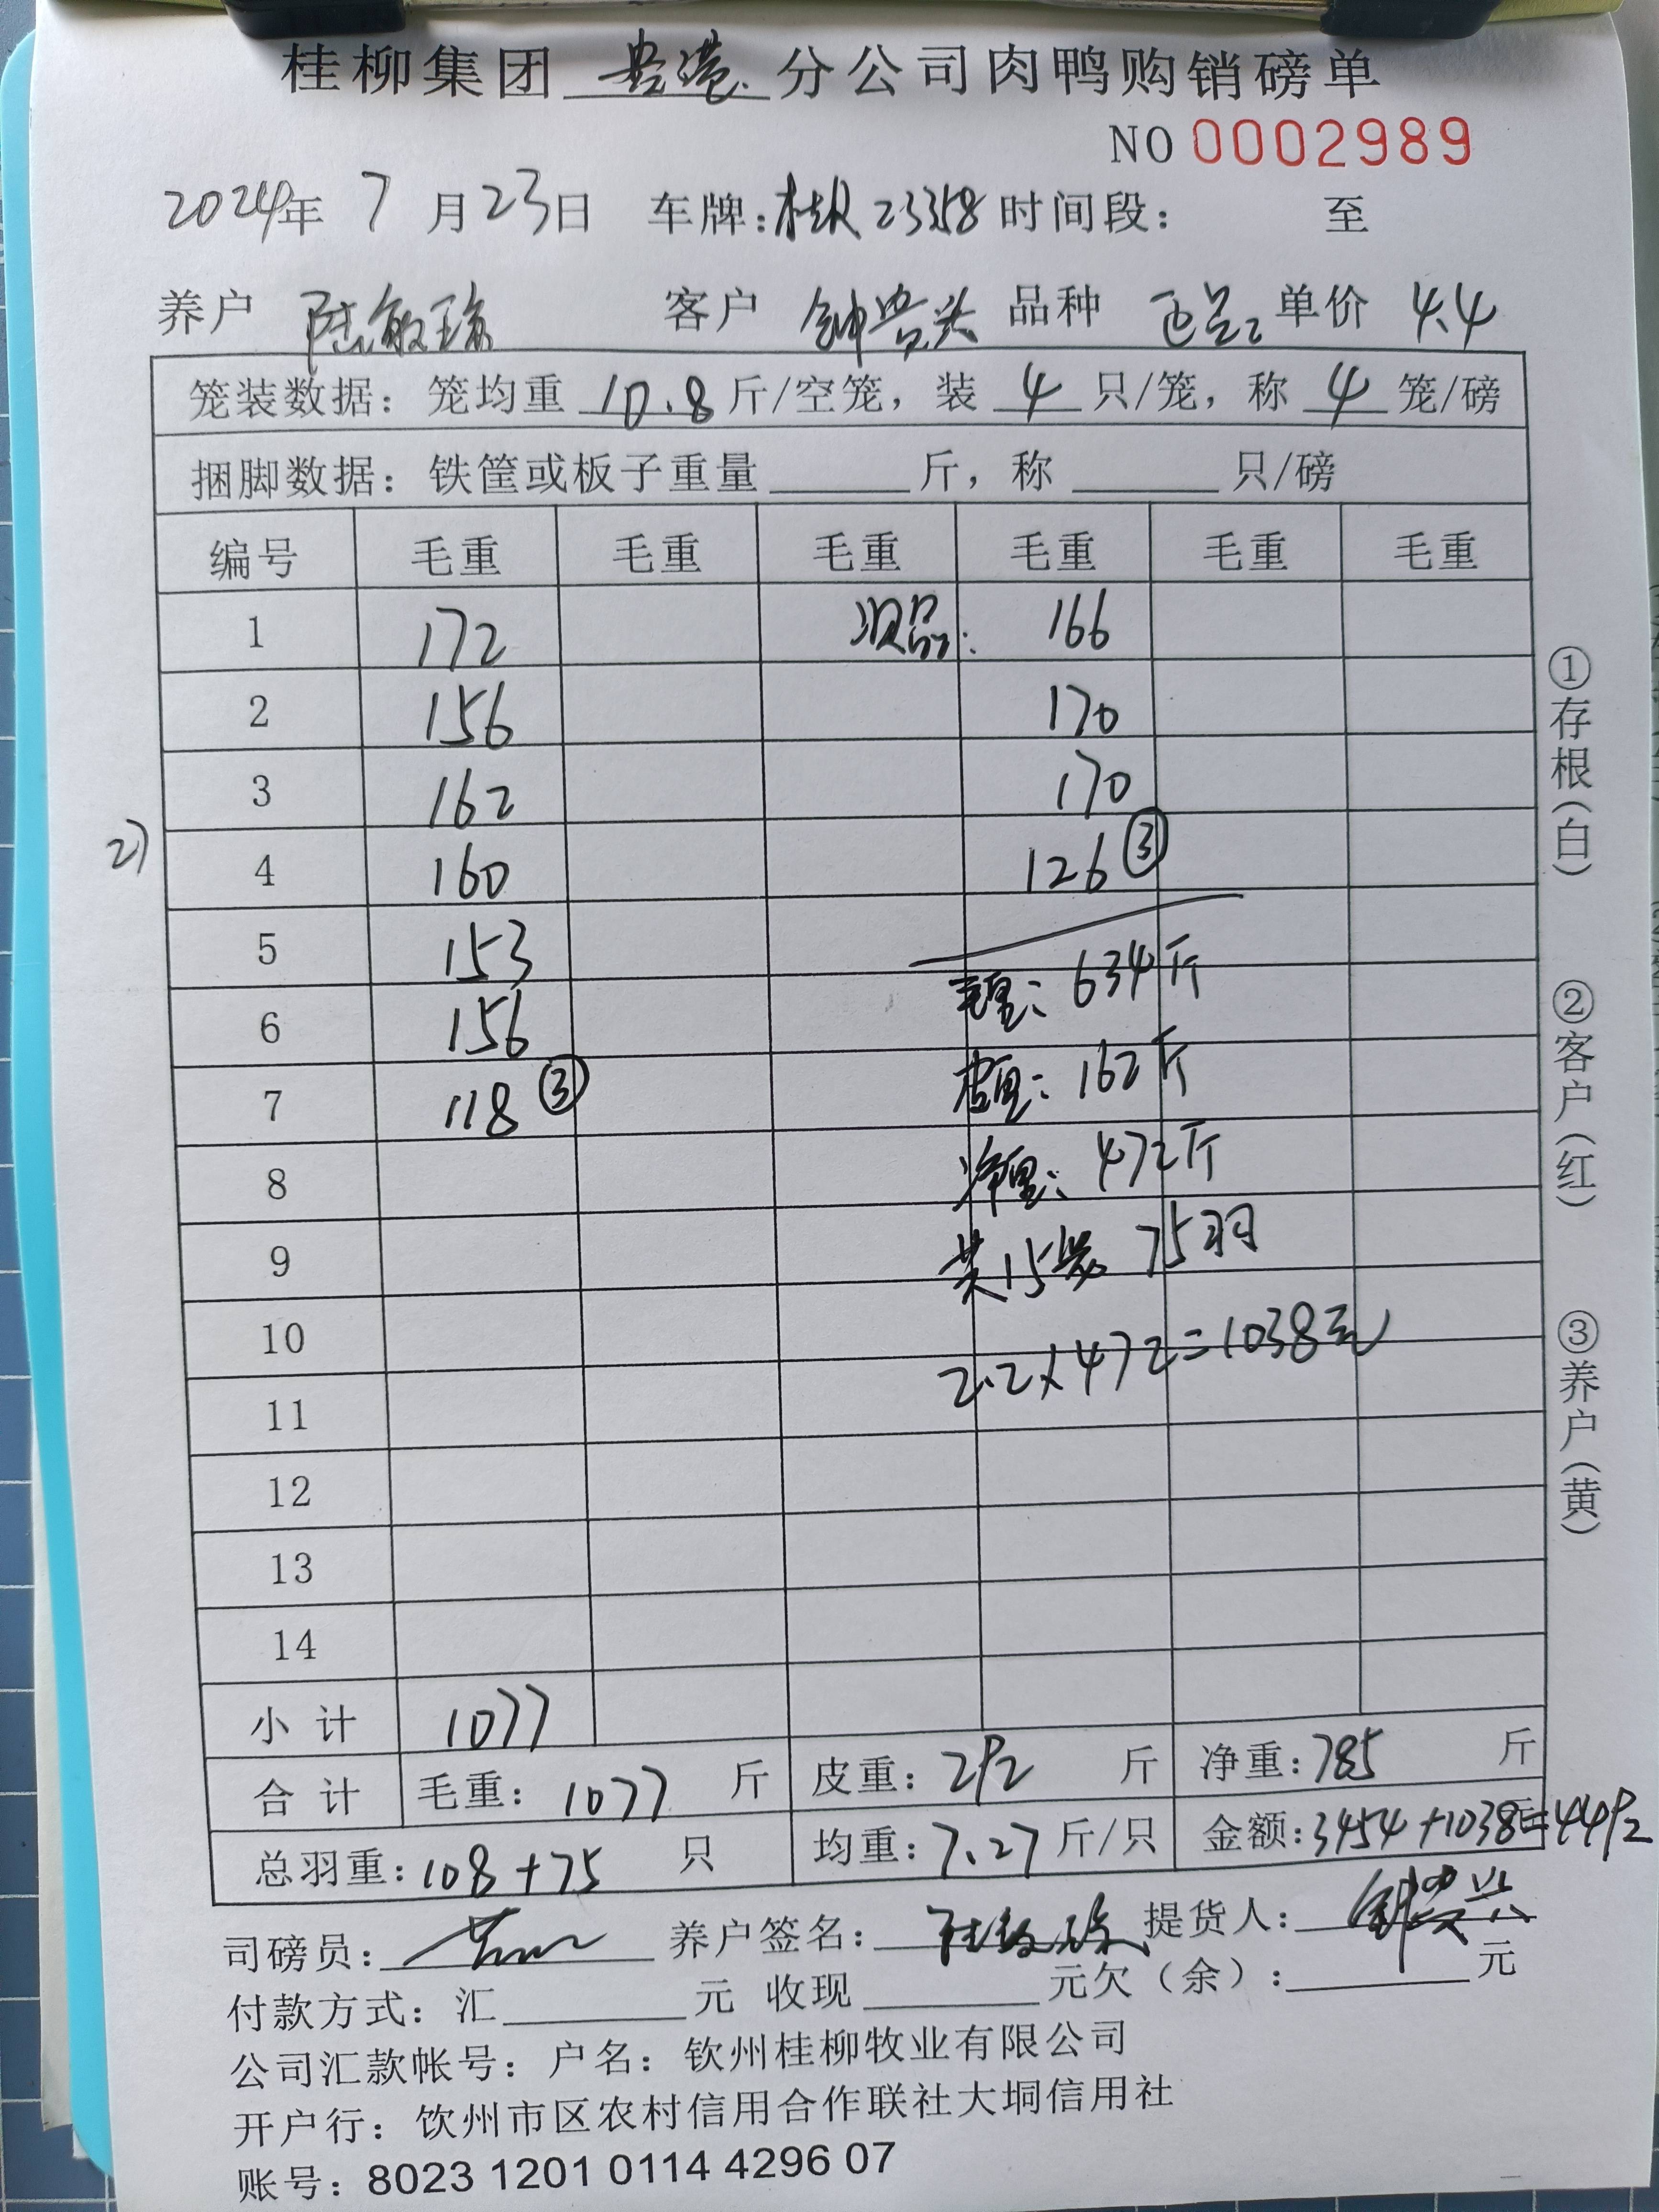 桂柳集团 贵港 分公司肉鸭购销磅单
NO 0002989
2024年 7 月 23 日 车牌: 23358 时间段: 至
养户 陆敏琼 客户 钟贵兴 品种 单价 4.4
笼装数据: 笼均重 10.8 斤/空笼, 装 4 只/笼, 称 4 笼/磅
捆脚数据: 铁筐或板子重量 斤, 称 只/磅
编号 毛重 毛重 毛重 毛重 毛重 毛重
1 172 次品: 166
2 156 170
3 162 170
2)
4 160 126 ③
5 153
毛重: 634斤
6 156
皮重: 162斤
7 118 ③
净重: 472斤
8
共15笼 75羽
9
10
2.2×472=1038元
11
12
13
14
小计 1077
合计 毛重: 1077 斤 皮重: 292 斤 净重: 785 斤
总羽重: 108+75 只 均重: 7.27 斤/只 金额: 3454+1038元=4492
司磅员: 养户签名: 陆敏琼 提货人: 钟贵兴
付款方式: 汇 元 收现 元欠(余): 元
公司汇款帐号: 户名: 钦州桂柳牧业有限公司
开户行: 钦州市区农村信用合作联社大垌信用社
账号: 8023 1201 0114 4296 07
①存根(白)
②客户(红)
③养户(黄)